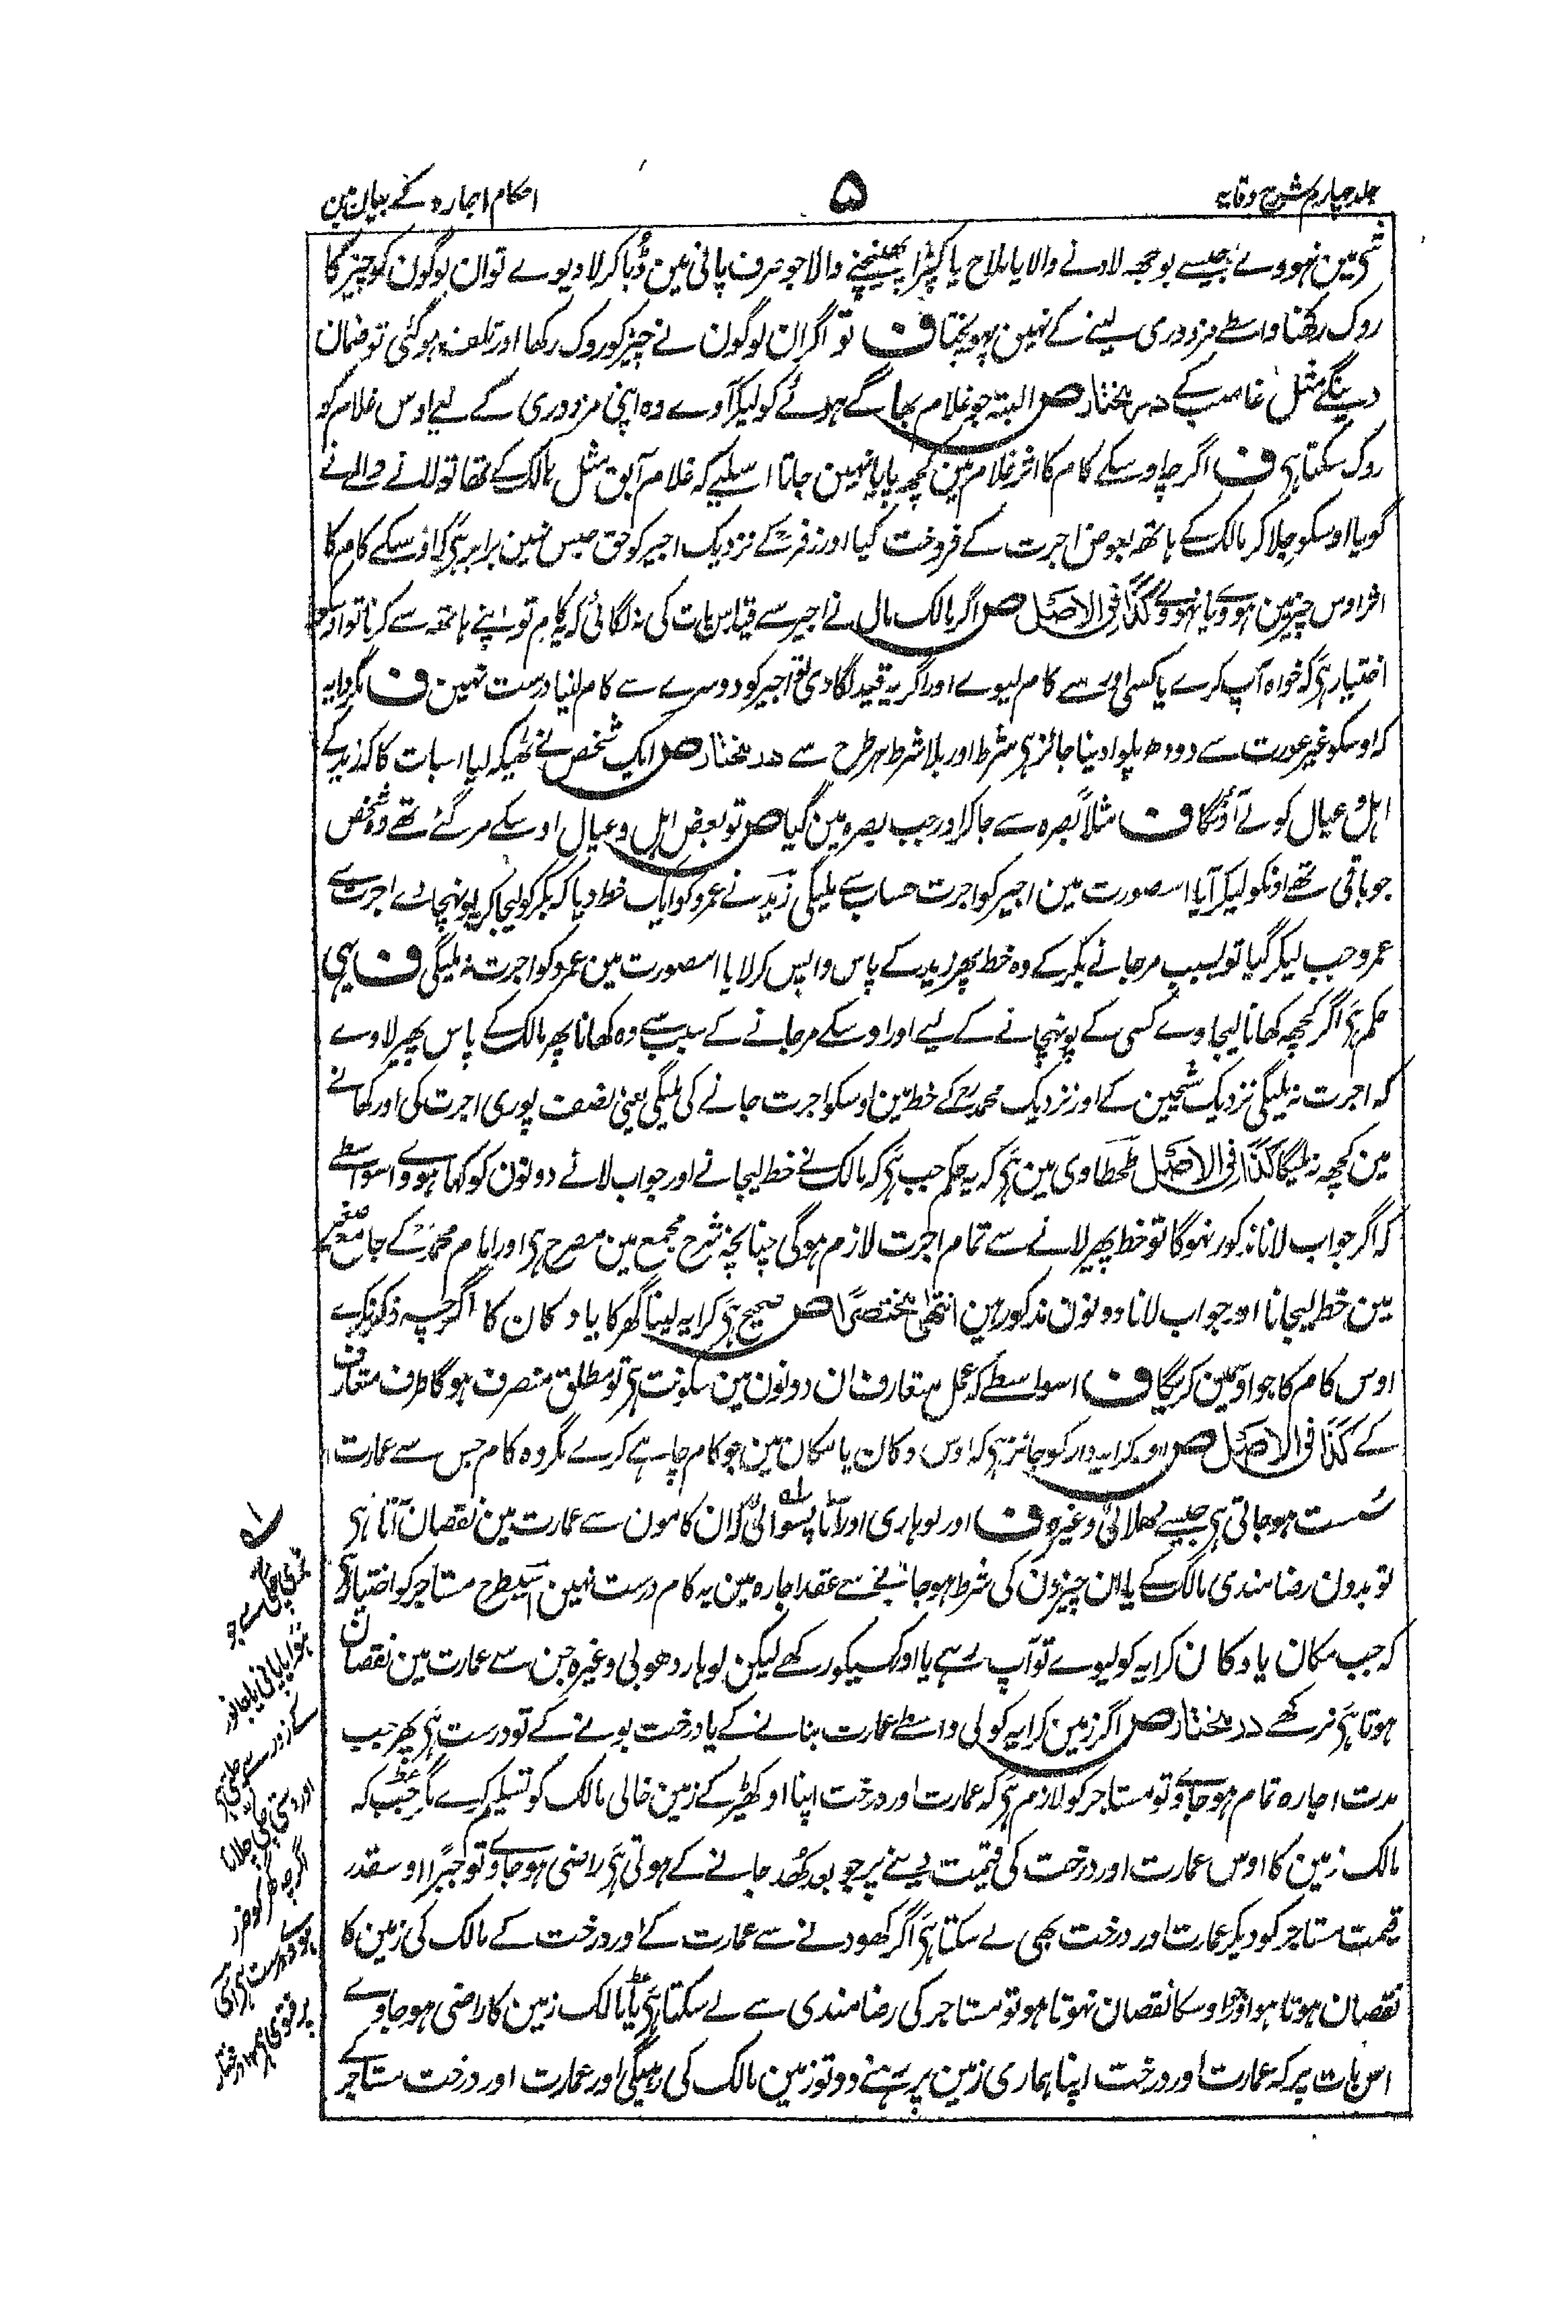 جلد چہارم شرح وقایہ
۵
احکام اجارہ کے بیان مین
شی مین نہووے جیسے بوجھ لادنے والا یا ملاح یا کپڑا بھینچنے والا جو صرف پانی مین ڈبا کر لا دیوے تو ان لوگون کو چیز کا
روک رکھنا واسطے مزدوری لینے کے نہین پہونچتا ف تو اگر ان لوگون نے چیز کو روک رکھا اور تلف ہوگئی تو ضمان
دینگے مثل غاصب کے در مختار ص البتہ جو غلام بھاگے ہوئے کو لیکر آوے وہ اپنی مزدوری کے لیے اوس غلام کو
روک سکتا ہی ف اگرچہ اوسکے کام کا اثر غلام مین کچھ پایا نہین جاتا اسلیے کہ غلام آبق مثل ہالک کے تھا تو لانے والے نے
گویا اوسکو جلا کر مالک کے ہاتھ بعوض اجرت کے فروخت کیا اور زفرؒ کے نزدیک اجیر کو حق حبس نہین برابر ہی کہ اوسکے کام کا
اثر اوس چیز مین ہووے یا نہووے کذا فی الاصل ص اگر مالک مال نے اجیر سے قید اس بات کی نہ لگائی کہ یہ کام تو اپنے ہاتھ سے کرنا تو اوسکو
اختیار ہی کہ خواہ آپ کرے یا کسی اور سے کام لیوے اور اگر یہ قید لگا دی تو اجیر کو دوسرے سے کام لینا درست نہین ف مگر دایہ
کہ اوسکو غیر عورت سے دودھ پلوا دینا جائز ہی شرط اور بلا شرط ہر طرح سے در مختار ص ایک شخص نے ٹھیکہ لیا اسبات کا کہ زید کے
اہل و عیال کو لے آؤنگا ف مثلاً بصرہ سے جا کر اور جب بصرہ مین گیا ص تو بعض اہل و عیال اوسکے مر گئے تھے وہ شخص
جو باقی تھے اونکو لیکر آیا اس صورت مین اجیر کو اجرت حساب سے ملیگی زید نے عمرو کو ایک خط دیا کہ بکر کو لیجا کر پونہچا دے اجرت سے
عمرو جب لیکر گیا تو بسبب مر جانے بکر کے وہ خط پھر زید کے پاس واپس کر لایا اس صورت مین عمرو کو اجرت نہ ملیگی ف یہی
حکم ہی اگر کچھ کھانا لیجاوے کسی کے پونہچانے کے لیے اور اوسکے مر جانے کے سبب سے وہ کھانا پھر مالک کے پاس پھیر لاوے
کہ اجرت نہ ملیگی نزدیک شیخین کے اور نزدیک محمدؒ کے خط مین اوسکو اجرت جانے کی ملیگی یعنی نصف پوری اجرت کی اور کھانے
مین کچھ نہ ملیگا کذا فی الاصل طحطاوی مین ہی کہ یہ حکم جب ہی کہ مالک نے خط لیجانے اور جواب لانے دونون کو کہا ہووے اسواسطے
کہ اگر جواب لانا مذکور نہوگا تو خط پھیر لانے سے تمام اجرت لازم ہوگی چنانچہ شرح مجمع مین مصرح ہی اور امام محمدؒ کے جامع صغیر
مین خط لیجانا اور جواب لانا دونون مذکور ہین انتہی مختصراً ص صحیح ہی کرایہ لینا گھر کا یا دکان کا اگرچہ ذکر نکرے
اوس کام کا جو اوسمین کریگا ف اسواسطے کہ عمل متعارف ان دونون مین سکونت ہی تو مطلق منصرف ہوگا طرف متعارف
کے کذا فی الاصل ص اور کرایہ دار کو جائز ہی کہ اوس دکان یا مکان مین جو کام چاہے کرے مگر وہ کام جس سے عمارت
سست ہو جاتی ہی جیسے دھلائی وغیرہ ف اور لوہاری اور آٹا پسوائی کہ ان کامون سے عمارت مین نقصان آتا ہی
تو بدون رضامندی مالک کے یا ان چیزون کی شرط ہو جانے سے عقد اجارہ مین یہ کام درست نہین اسیطرح مستاجر کو اختیار ہی
کہ جب مکان یا دکان کرایہ کو لیوے تو آپ رہے یا اور کسیکو رکھے لیکن لوہار دھوبی وغیرہ جن سے عمارت مین نقصان
ہوتا ہی نرکھے در مختار ص اگر زمین کرایہ کو لی واسطے عمارت بنانے کے یا درخت بونے کے تو درست ہی پھر جب
مدت اجارہ تمام ہو جاوے تو مستاجر کو لازم ہی کہ عمارت اور درخت اپنا اوکھیڑ کے زمین خالی مالک کو تسلیم کرے مگر جب کہ
مالک زمین کا اوس عمارت اور درخت کی قیمت دینے پر جو بعد کھد جانے کے ہوتی ہی راضی ہو جاوے تو جبراً اوسقدر
قیمت مستاجر کو دیکر عمارت اور درخت بھی لے سکتا ہی اگر کھودنے سے عمارت کے اور درخت کے مالک کی زمین کا
نقصان ہوتا ہو اور جو اوسکا نقصان نہوتا ہو تو مستاجر کی رضامندی سے لے سکتا ہی یا مالک زمین کا راضی ہو جاوے
اس بات پر کہ عمارت اور درخت اپنا ہماری زمین پر رہنے دو تو زمین مالک کی رہیگی اور عمارت اور درخت مستاجر کے
چکی سے جو
ہوا یا پانی یا جانور
کے زور سے چلتی ہی
اور دستی چکی چلانا
اگرچہ گھر کو ضرر
ہو درست ہی اسی
پر فتوی ہی در مختار